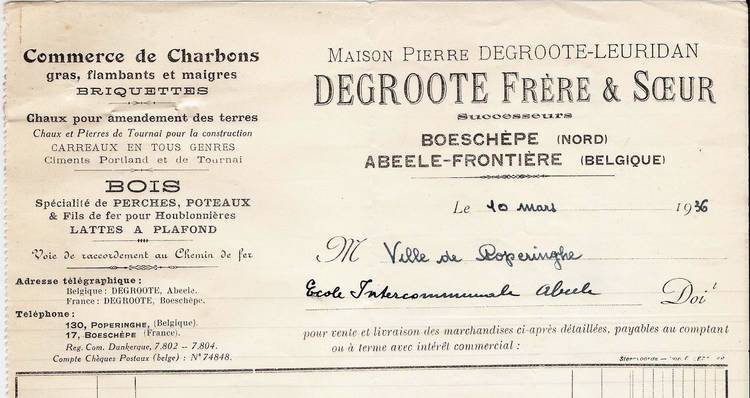 Commerce de Charbons
gras, flambants et maigres
BRIQUETTES
Chaux pour amendement des terres
Chaux et Pierres de Tournai pour la construction
CARREAUX EN TOUS GENRES
Ciments Portland et de Tournai
BOIS
Spécialité de PERCHES, POTEAUX
& Fils de fer pour Houblonnières
LATTES A PLAFOND
Voie de raccordement au Chemin de fer
Adresse télégraphique :
Belgique : DEGROOTE, Abeele.
France : DEGROOTE, Boeschèpe.
Téléphone :
130, POPERINGHE, (Belgique).
17, BOESCHÈPE (France).
Reg. Com. Dunkerque, 7.802 -- 7.804.
Compte Chèques Postaux (belge) : N° 74848.
MAISON PIERRE DEGROOTE-LEURIDAN
DEGROOTE FRÈRE & SŒUR
Successeurs
BOESCHÈPE (NORD)
ABEELE-FRONTIÈRE (BELGIQUE)
Le 10 mars 1936
M Ville de Poperinghe
Ecole Intercommunale Abeele Doit
pour vente et livraison des marchandises ci-après détaillées, payables au comptant
ou à terme avec intérêt commercial :